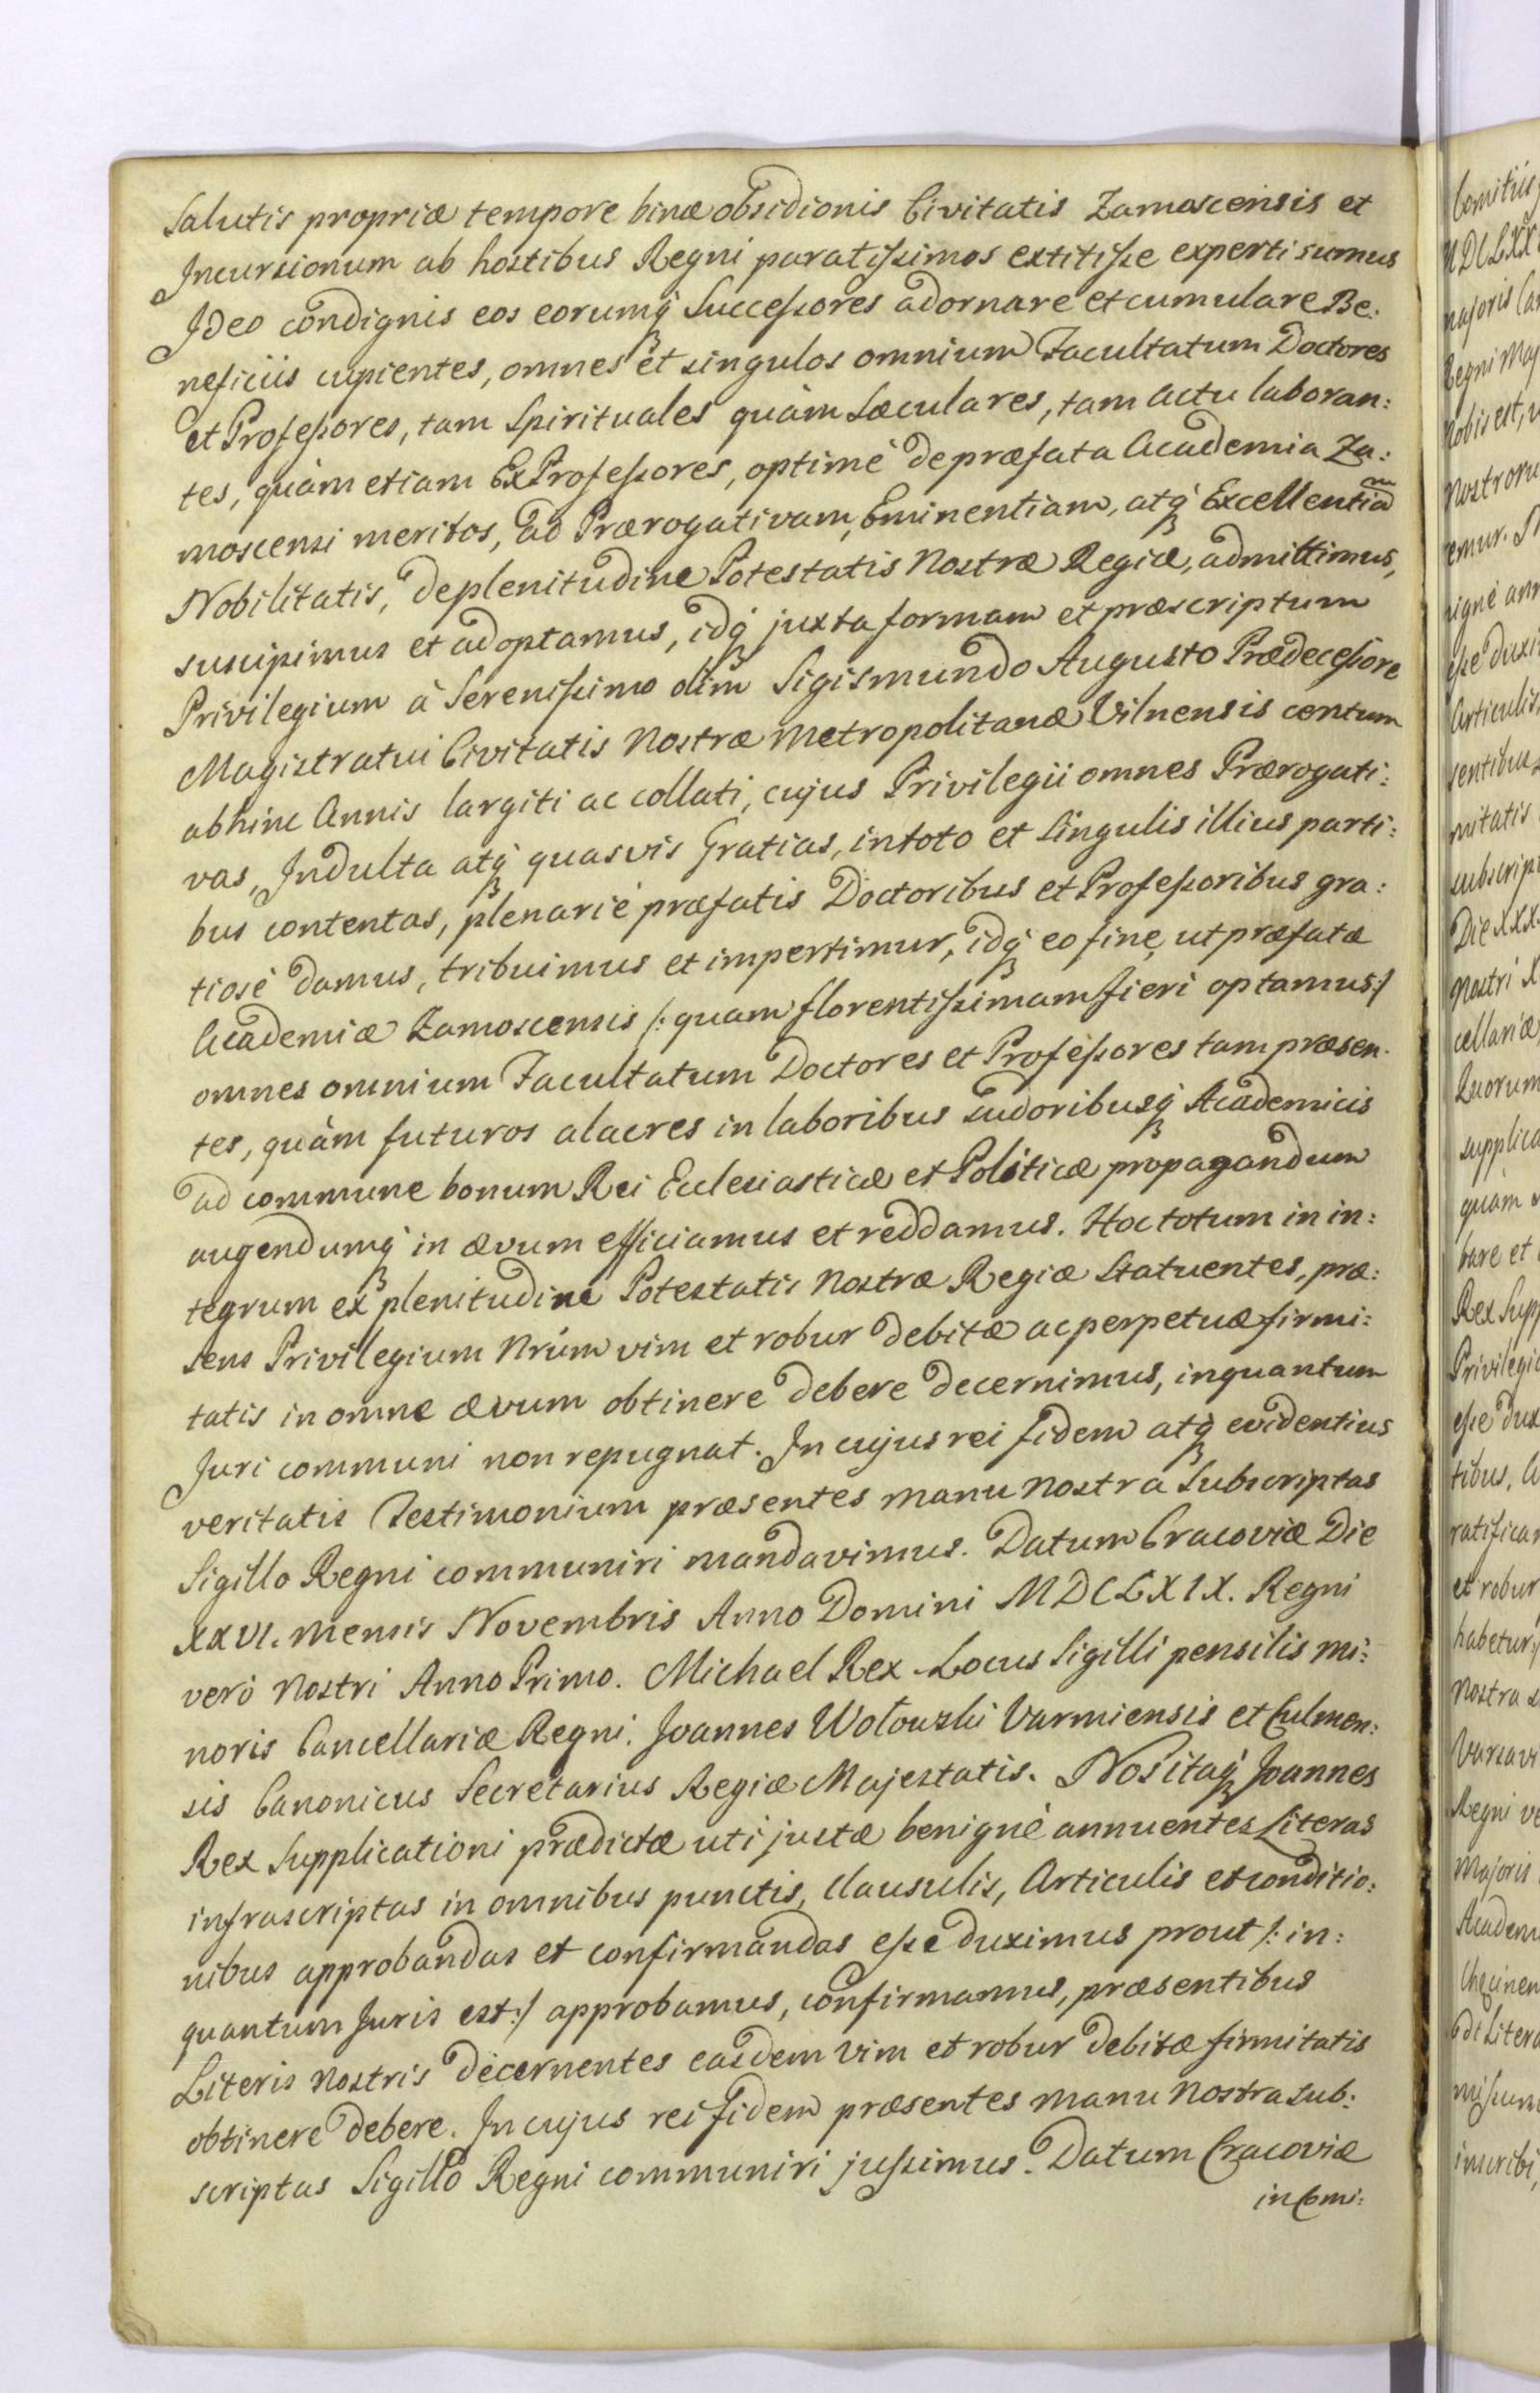 Salutis propriæ tempore binæ obsidionis Civitatis Zamoscensis et
Incursionum ab hostibus Regni paratissimos extitisse experti sumus
Ideo condignis eos eorumq́ Successores adornare et cumulare Be:
neficiis cupientes, omnes et singulos omnium Facultatum Doctores
et Professores, tam Spirituales quàm Sæculares, tam actu laboran:
tes, quàm etiam Ex Professores, optimè de præfata Academia Za:
moscensi meritos, ad Prærogativam, Eminentiam, atq́ Excellentiam
Nobilitatis, de plenitudine Potestatis Nostræ Regiæ, admittimus,
suscipimus et adoptamus, idq́ juxta formam et præscriptum
Privilegium à Serenissimo olim Sigismundo Augusto Prædecessore
Magistratui Civitatis Nostræ Metropolitanæ Vilnensis centum
abhinc Annis largiti ac collati, cujus Privilegii omnes Prærogati:
vas, Indulta atq́ quasvis Gratias, in toto et Singulis illius parti:
bus contentas, plenariè præfatis Doctoribus et Professoribus gra:
tiosè damus, tribuimus et impertimur, idq́ eo fine, ut præfatæ
Academiæ Zamoscensis /: quam florentissimam fieri optamus :/
omnes omnium Facultatum Doctores et Professores tam præsen:
tes, quàm futuros alacres in laboribus sudoribusq́ Academicis
ad commune bonum Rei Ecclesiasticæ et Politicæ propagandum
augendumq́ in ævum efficiamus et reddamus. Hoc totum in in:
tegrum ex plenitudine Potestatis Nostræ Regiæ Statuentes, præ:
sens Privilegium Nrúm vim et robur debitæ ac perpetuæ firmi:
tatis in omne ævum obtinere debere decernimus, inquantum
Juri communi non repugnat. In cujus rei fidem atq́ evidentius
veritatis Testimonium præsentes manu nostra Subscriptas
Sigillo Regni communiri mandavimus. Datum Cracoviæ Die
XXVI. mensis Novembris Anno Domini MDCLXIX. Regni
verò Nostri Anno Primo. Michael Rex. Locus Sigilli pensilis mi:
noris Cancellariæ Regni. Joannes Wołowski Varmiensis et Culmen:
sis Canonicus Secretarius Regiæ Majestatis. Nos itaq́ Joannes
Rex Supplicationi prædictæ uti justæ benignè annuentes Literas
infrascriptas in omnibus punctis, Clausulis, Articulis et conditio:
nibus approbandas et confirmandas esse duximus prout /: in:
quantum Juris est :/ approbamus, confirmamus, præsentibus
Literis nostris decernentes easdem vim et robur debitæ firmitatis
obtinere debere. In cujus rei fidem præsentes manu Nostra sub:
scriptas Sigillo Regni communiri jussimus. Datum Cracoviæ
in Comi: